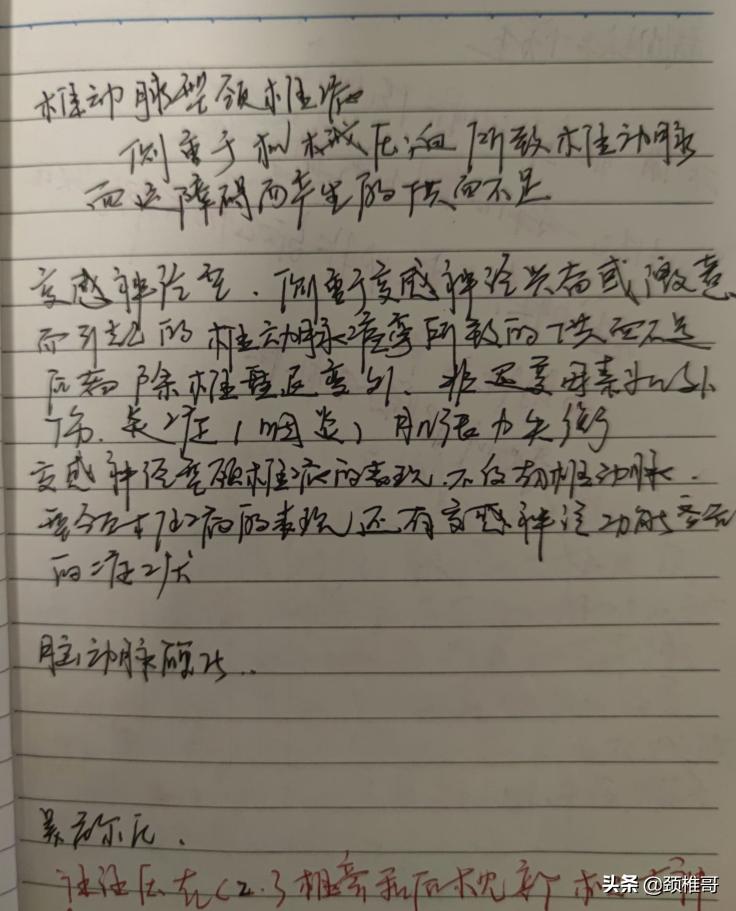 椎动脉型颈椎病
侧重于机械压迫所致椎动脉
血运障碍而产生的供血不足
交感神经型. 侧重于交感神经兴奋或激惹
而引起的椎动脉痉挛所致的供血不足
病除椎骨退变外. 非退变因素如外
伤. 炎症(咽炎) 肌张力失衡
交感神经型颈椎病的表现. 不仅有椎动脉.
型(的表现)还有交感神经功能紊乱
的症状
脑动脉硬化..
美尼尔氏.
注注压在C2.3椎旁和后枕
头条 @颈椎哥